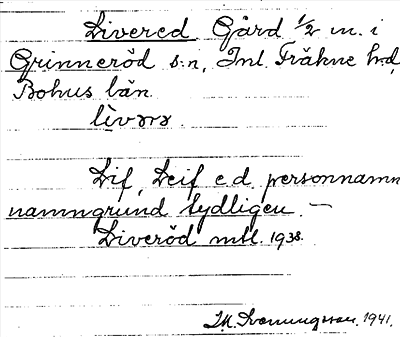 Livered Gård 1/2 m. i
Grinneröd s:n, Inl. Fräkne hd,
Bohus län.
lìvərə.
Lif, Leif e.d. personnamn
namngrund tydligen. —
Liveröd mtl. 1938.
I.M. Svenningsson. 1941.